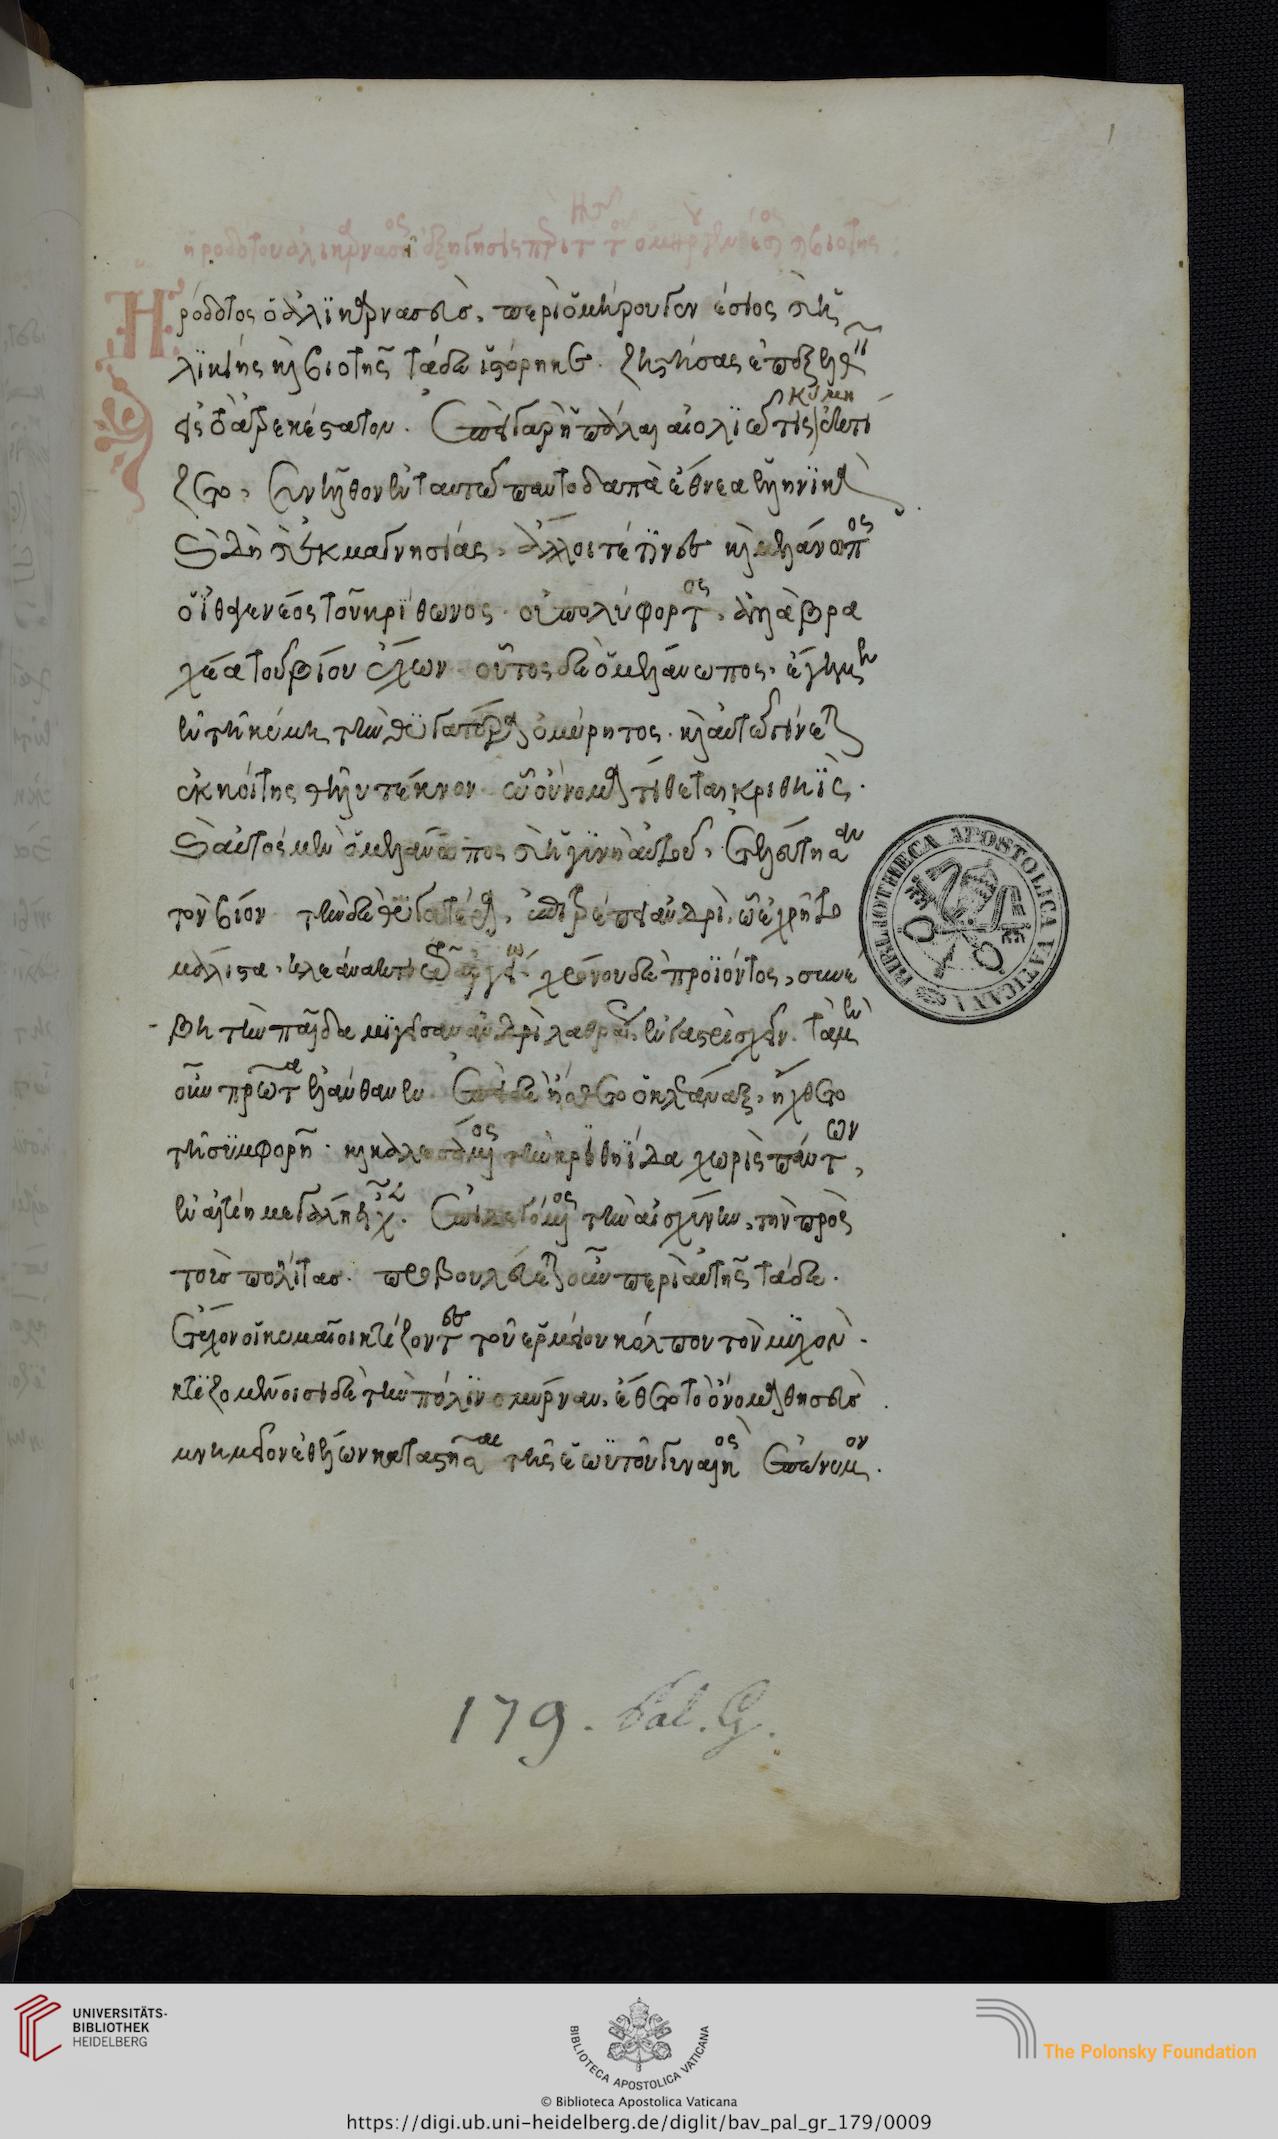 1
ἡροδότου ἁλικαρνασέος ἐξήγησις περὶ τῆς τοῦ ὁμήρου γενέσιος καὶ βιοτῆς:
Ἡρόδοτος ὁ ἁλϊκαρνασεὺς, περὶ ὁμήρου γενέσιος καὶ ἡ
λϊκίης καὶ βιοτῆς τάδε ἱστόρηκε. ζητήσας ἐπεξελθεῖν
εἰς τὰ ἀτρεκέστατον. ἐπεὶ γὰρ ἡ πάλαι αἰολϊῶτις κύμη ἐκτί
ζετο, συνῆλθον ἐν ταυτῶ παντοδαπὰ ἔθνεα ἑλληνϊκὰ
καὶ δὴ καὶ ἐκ μαγνησίας. ἄλλοι τέ τϊνες καὶ μελάνωπος
ὁ ἰθαγενέος τοῦ κρϊθωνος. οὐ πολύφορτος, ἀλλὰ βρα
χέα τοῦ βίου ἔχων. οὗτος δὲ ὁ μελάνωπος. ἔγημεν
ἐν τῆ κύμη τὴν θϋγατέρα ὀμύρητος. καὶ αὐτῶ γίνεται
ἐκ κοίτης θῆλυ τέκνον. ὧ οὔνομα τίθεται κριθηῒς.
καὶ αὐτὸς μὲν ὁ μελάνωπος καὶ ἡ γϋνὴ αὐτοῦ, ἐτελεύτησαν
τὸν βίον. τὴν δὲ θϋγατέρα, ἐπιτρέπει ἀνδρὶ, ὧ ἐχρῆτο
μάλιστα, κλεάνακτι τῶ ἀργείω. χρόνου δὲ προϊόντος, συνέ
βη τὴν παῖδα μϊγεῖσαν ἀνδρὶ λαθραίως, ἐν γαστρὶ σχεῖν. τὰ μὲν
οὖν πρῶτα ἐλάνθανεν. ἐπεὶ δὲ ἤσθετο ὁ κλεάναξ, ἤχθετο
τῆ συμφορῆ. καὶ καλεσάμενος τὴν κρϊθηΐδα χωρὶς πάντων,
ἐν αἰτίη μεγάλη εἶχεν. ἐπιλεγόμενος τὴν αἰσχύνην, τὴν πρὸς
τοὺς πολίτας. προβουλεύεται οὖν περὶ αὐτῆς τάδε.
ἔτϋχον οἱ κυμαῖοι κτίζοντες τοῦ ἑρμείου κόλπου τὸν μϋχὸν.
κτϊζομένοισι δὲ τὴν πόλϊν σμύρναν. ἔθετο τὸ ὄνομα θησεὺς
μνημεῖον ἐθέλων καταστῆσαι τῆς ἑωϋτοῦ γυναικὸς ἐπώνυμον.
179. Pal. G.
BIBLIOTHECA APOSTOLICA VATICANA
UNIVERSITÄTS-
BIBLIOTHEK
HEIDELBERG
BIBLIOTECA APOSTOLICA VATICANA
The Polonsky Foundation
© Biblioteca Apostolica Vaticana
https://digi.ub.uni-heidelberg.de/diglit/bav_pal_gr_179/0009